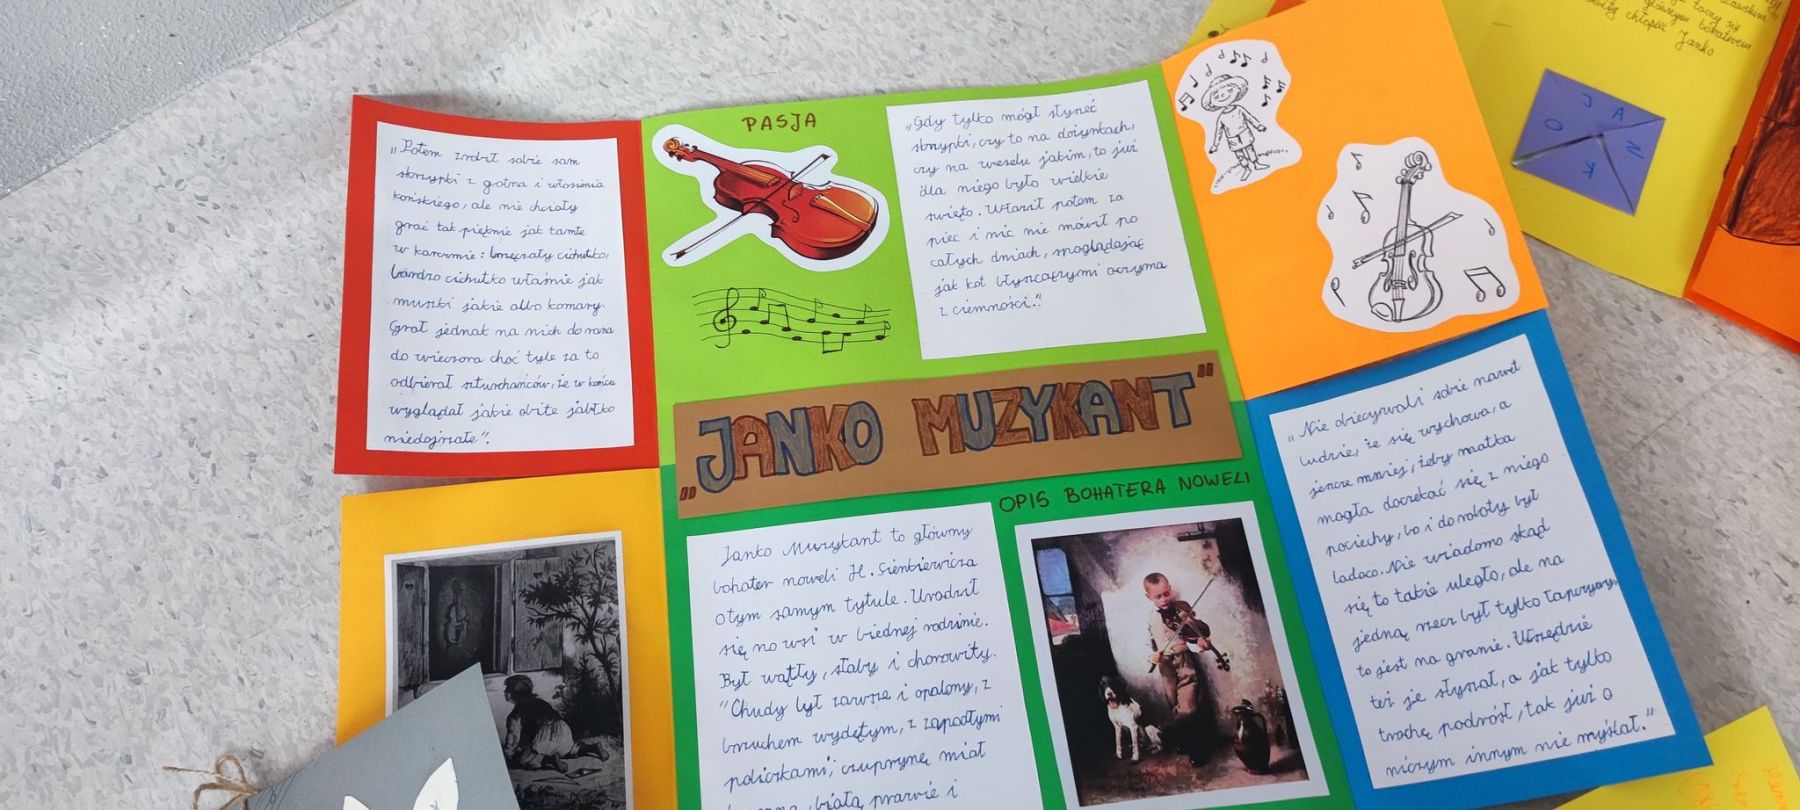 „Potem zrobił sobie sam
skrzypki z gotna i włosienia
końskiego, ale nie chciały
grać tak pięknie jak tamte
w karczmie: brzęczały cichutko,
bardzo cichutko właśnie jak
muszki jakie albo komary.
Grał jednak na nich do rana
do wieczora choć tyle za to
odbierał szturchańców, że w końcu
wyglądał jakie obite jabłko
niedojrzałe".
PASJA
„Gdy tylko mógł słyszeć
skrzypki, czy to na dożynkach,
czy na weselu jakim, to już
dla niego było wielkie
święto. Właził potem za
piec i nic nie mówił po
całych dniach, spoglądając
jak kot błyszczącymi oczyma
z ciemności."
„JANKO MUZYKANT"
OPIS BOHATERA NOWELI
Janko Muzykant to główny
bohater noweli H. Sienkiewicza
o tym samym tytule. Urodził
się na wsi w biednej rodzinie.
Był wątły, słaby i chorowity.
"Chudy był zawsze i opalony, z
brzuchem wydętym, z zapadłymi
policzkami; czuprynę miał
białą prawie i
„Nie obiecywali sobie nawet
ludzie, że się wychowa, a
jeszcze mniej, żeby matka
mogła doczekać się z niego
pociechy, bo i do roboty był
ladaco. Nie wiadomo skąd
się to takie ulęgło, ale na
jedną rzecz był tylko łapczywy,
to jest na granie. Wszędzie
też je słyszał, a jak tylko
trochę podrósł, tak już o
niczym innym nie myślał."
toczy się
głównym bohaterem
chłopiec Janko
J A N K O